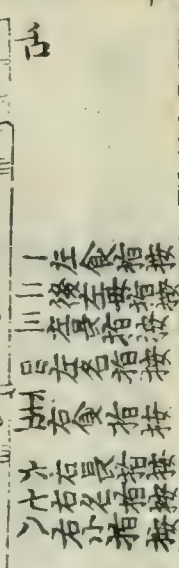 一左食指按
後左母指按
左長指按
左名指按
右食指按
六右長指按
右名指按
右小指按